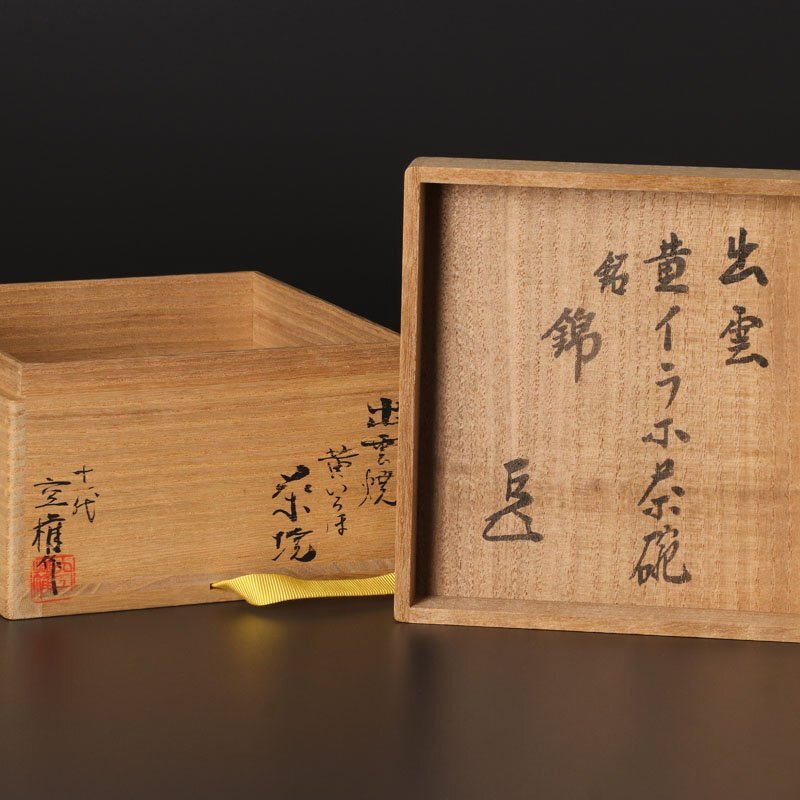 出雲
黄イラホ茶碗
銘
錦
出雲焼
黄いらほ
茶埦
十一代
空權作